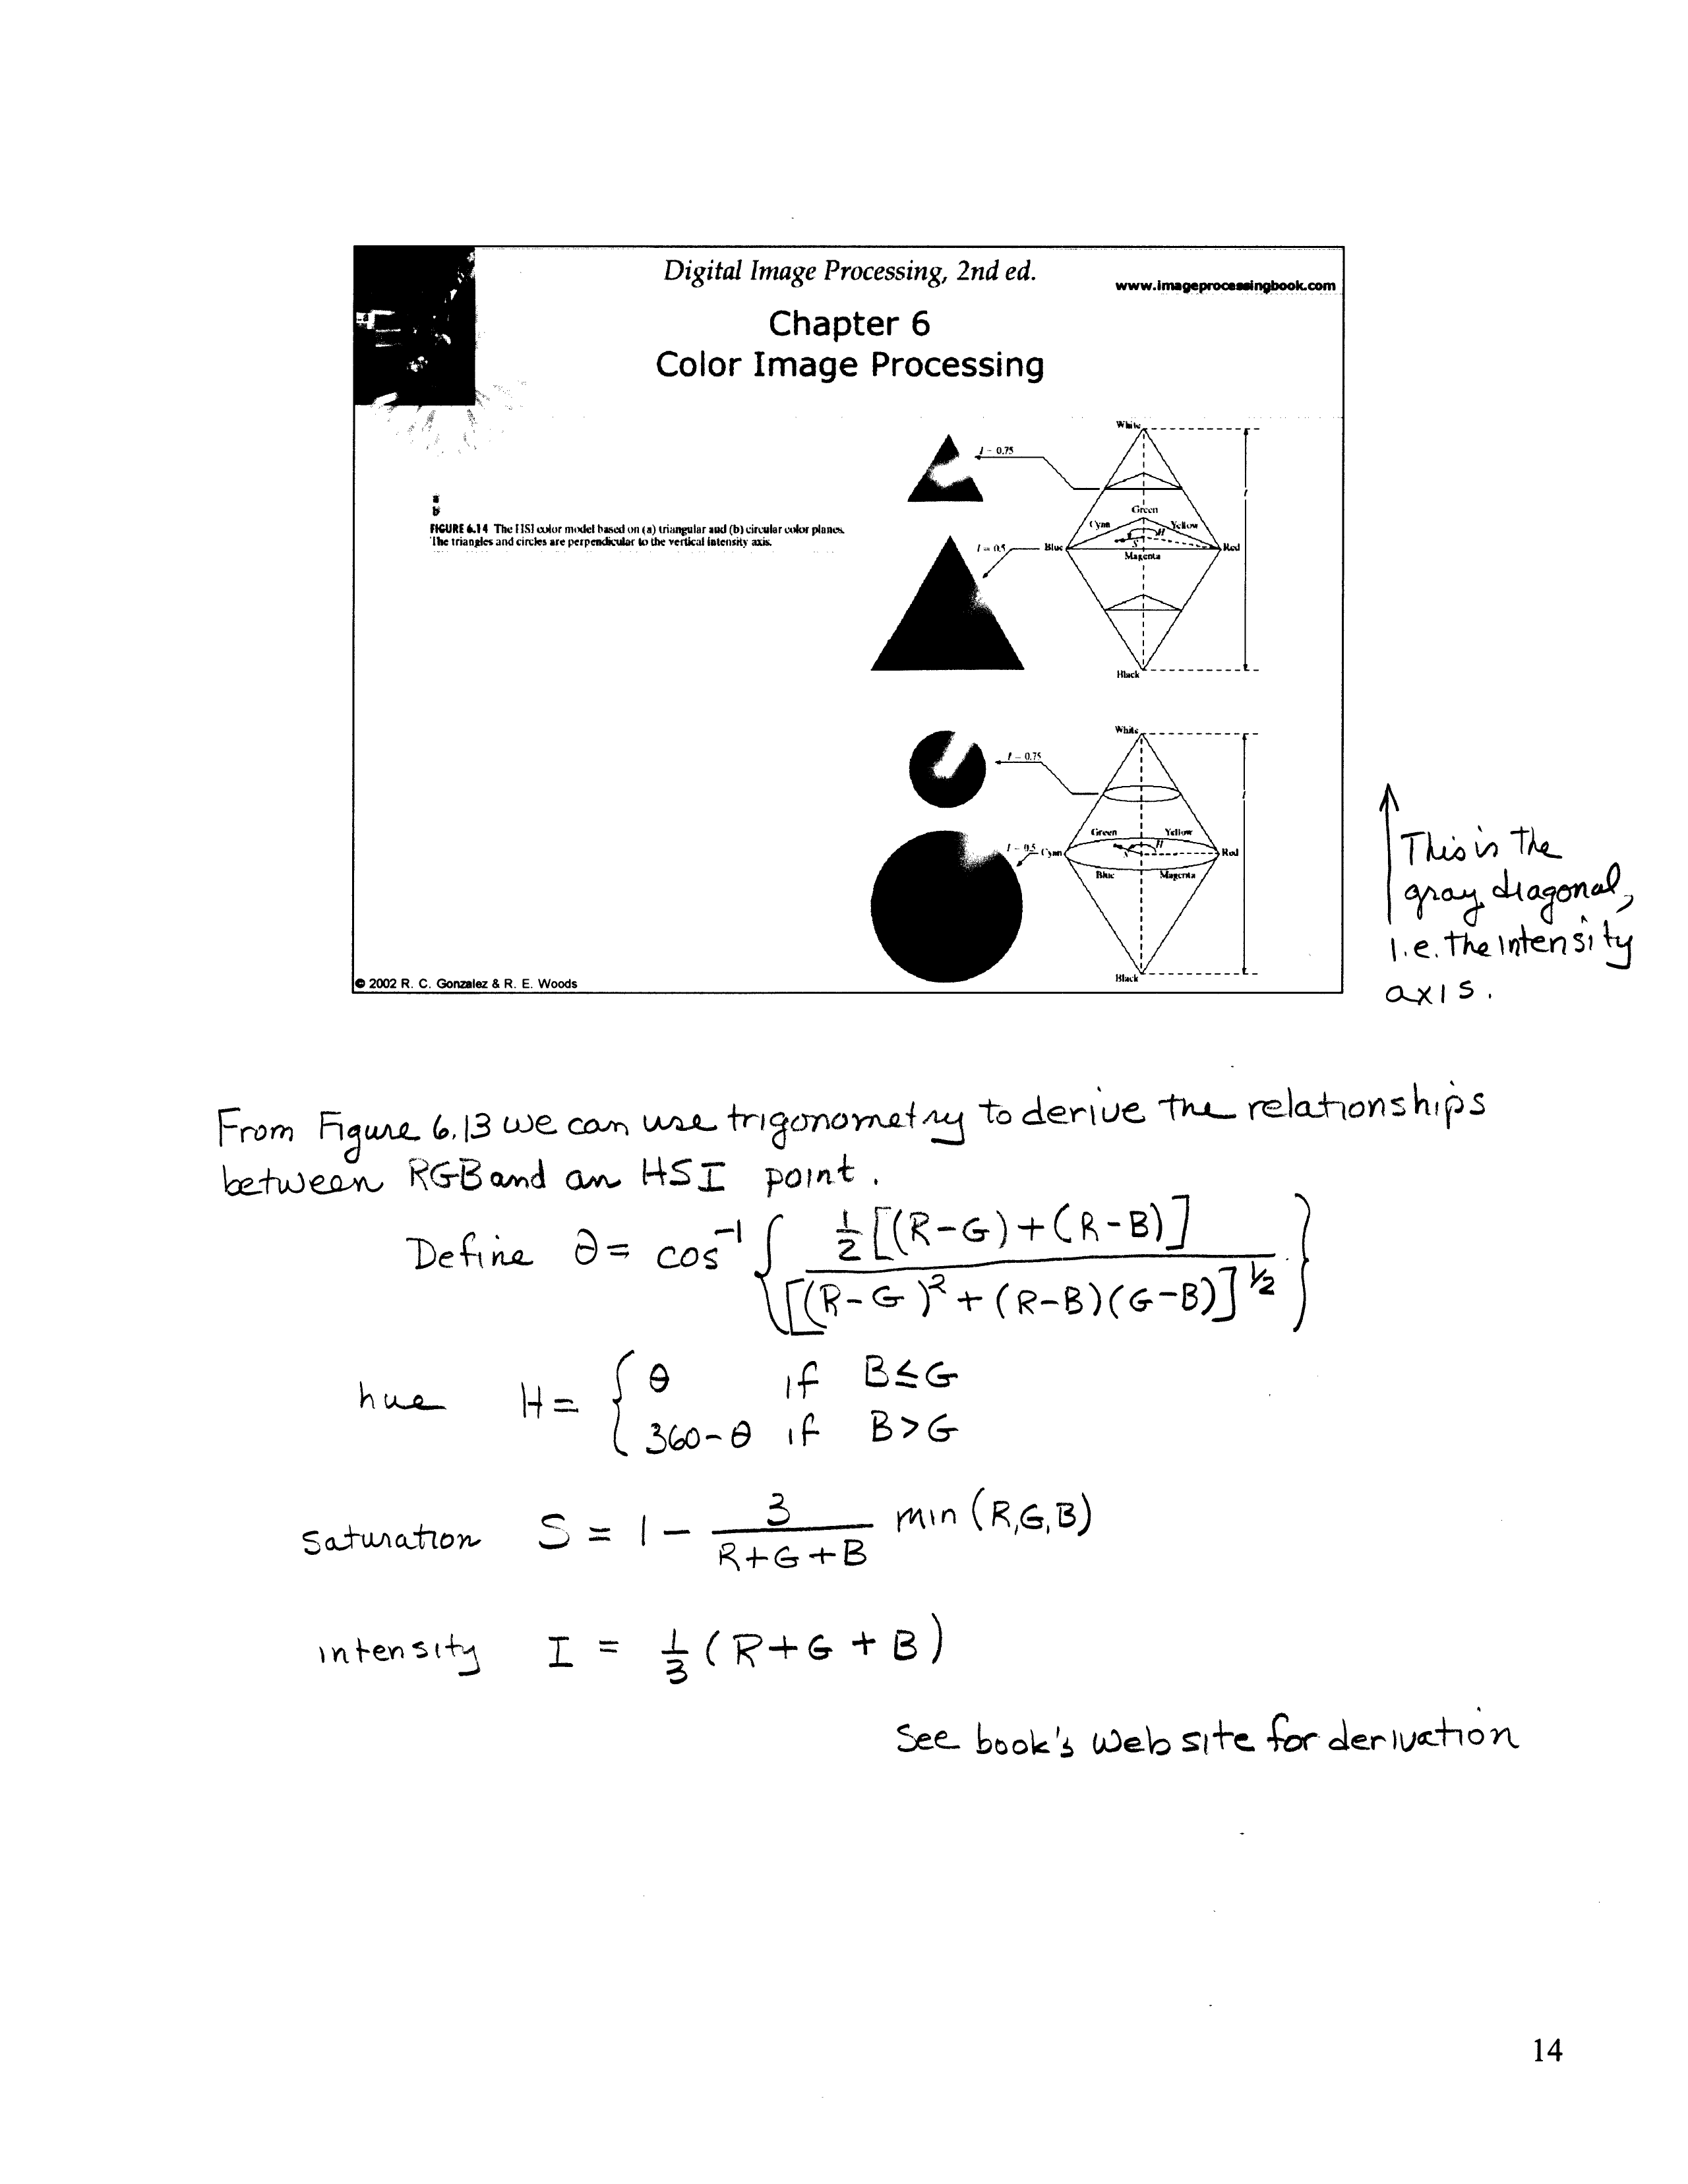 Digital Image Processing, 2nd ed.
www.imageprocessingbook.com
Chapter 6
Color Image Processing
a
b
FIGURE 6.14 The HSI color model based on (a) triangular and (b) circular color planes.
The triangles and circles are perpendicular to the vertical intensity axis.
White
I = 0.75
I
Green
Cyan
Yellow
H
S
I = 0.5
Blue
Red
Magenta
Black
White
I = 0.75
I
Green
Yellow
H
S
I = 0.5
Cyan
Red
Blue
Magenta
Black
© 2002 R. C. Gonzalez & R. E. Woods
This is the
gray diagonal,
i.e. the intensity
axis.
From Figure 6.13 we can use trigonometry to derive the relationships
between RGB and an HSI point.
Define θ = cos⁻¹ { ½[(R-G)+(R-B)] / [(R-G)²+(R-B)(G-B)]^½ }
hue H = { θ if B≤G
360-θ if B>G
saturation S = 1 - 3/(R+G+B) min(R,G,B)
intensity I = ⅓(R+G+B)
See book's web site for derivation
14